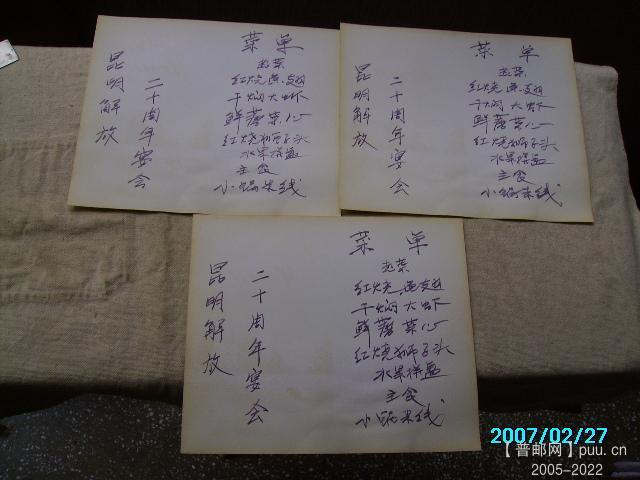 昆明解放
二十周年宴会
菜单
热菜
红烧鱼翅
干焖大虾
鲜蘑菜心
红烧狮子头
水果拼盘
主食
小锅米线
昆明解放
二十周年宴会
菜单
热菜
红烧鱼翅
干焖大虾
鲜蘑菜心
红烧狮子头
水果拼盘
主食
小锅米线
昆明解放
二十周年宴会
菜单
热菜
红烧鱼翅
干焖大虾
鲜蘑菜心
红烧狮子头
水果拼盘
主食
小锅米线
2007/02/27
【普邮网】puu.cn
2005-2022